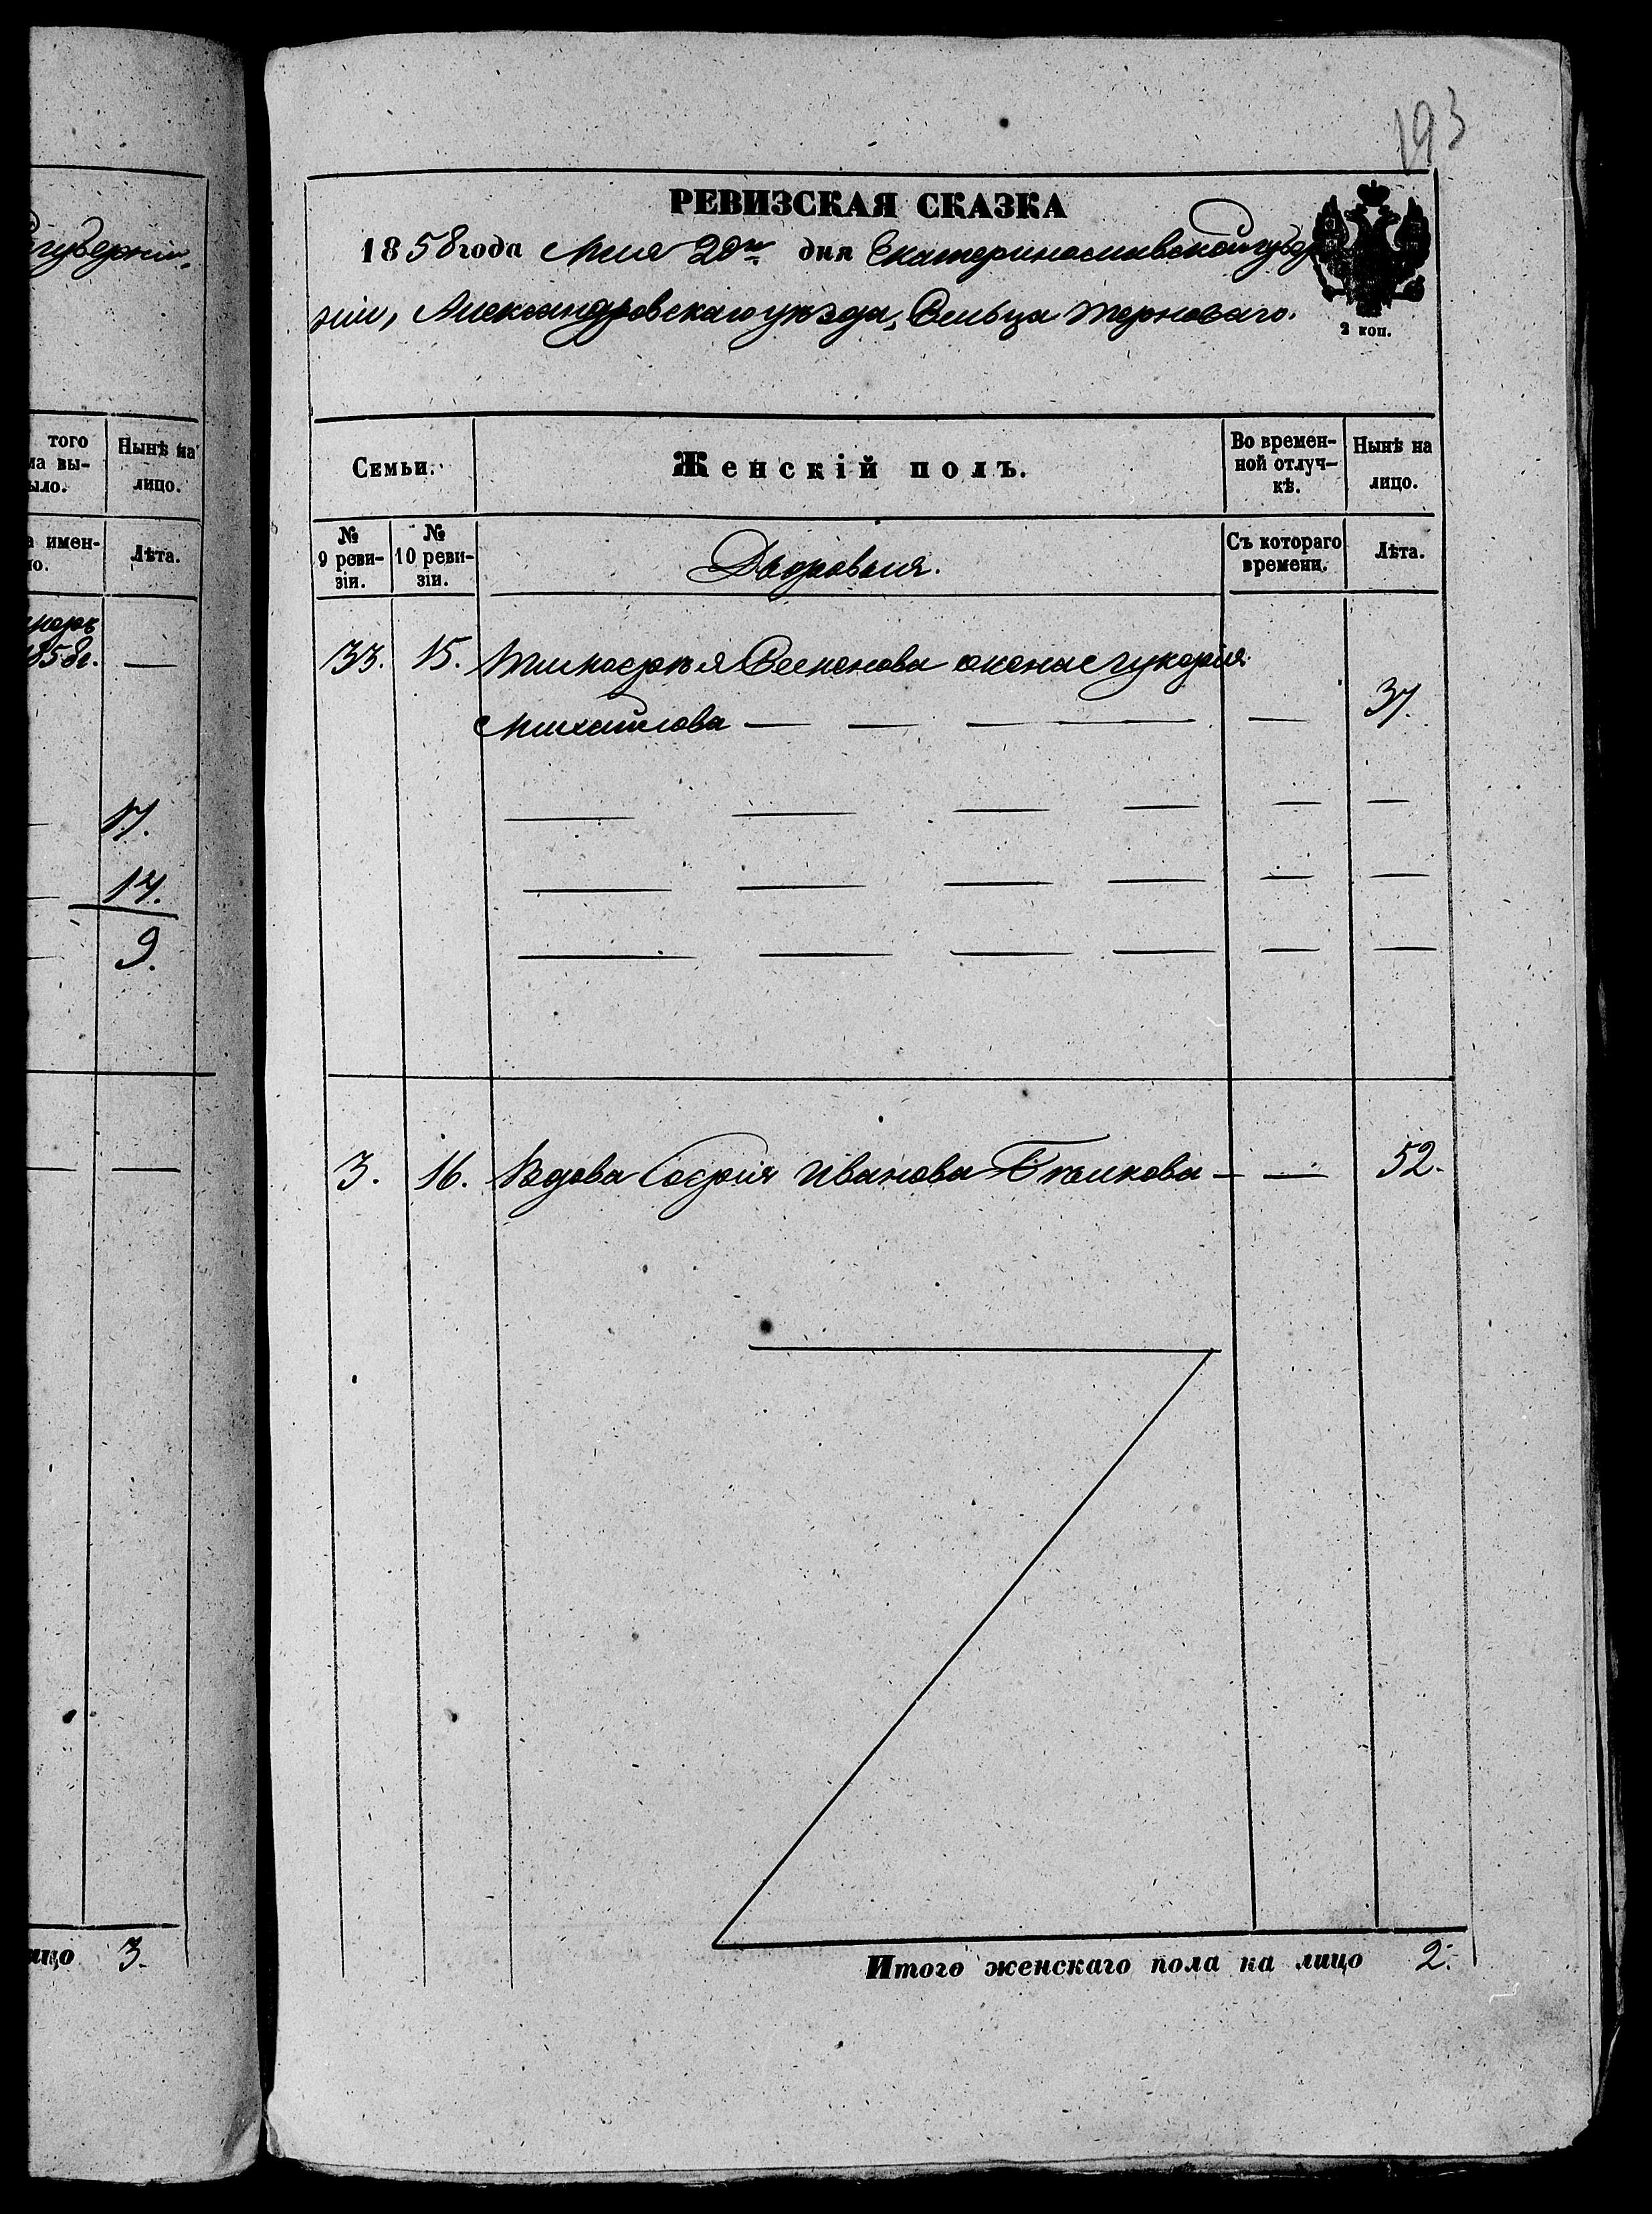 губерніи.
того
ма вы-
ыло.
Нынѣ на
лицо.
а имен-
но.
Лѣта.
1858г. —
17.
14.
9.
ицо 3.
193
РЕВИЗСКАЯ СКАЗКА
1858 года Мая 20го дня Екатеринославской губер
ніи, Александровскаго уѣзда, Сельца Терноваго.
2 коп.
Семьи.
Женскій полъ.
Во времен-
ной отлуч-
кѣ.
Нынѣ на
лицо.
№
9 реви-
зіи.
№
10 реви-
зіи.
Дворовыя.
Съ котораго
времени.
Лѣта.
33. 15. Тимофѣя Семенова жена Гликерія
Михайлова — — — — — 37.
3. 16. Вдова Софія Иванова Бѣликова — — 52.
Итого женскаго пола на лицо 2.